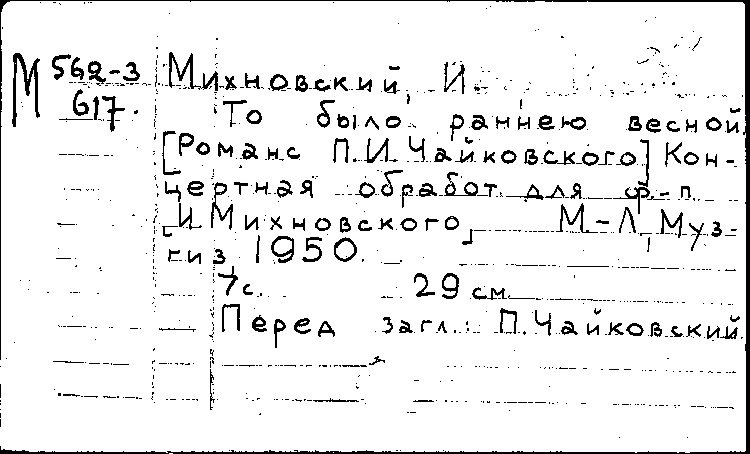 М 562-3
617.
Михновский, И.
То было раннею весной
[Романс П.И. Чайковского] Кон-
цертная обработ. для ф.-п.
[И Михновского] М-Л, Муз-
гиз 1950.
7с. 29 см.
Перед загл.: П. Чайковский